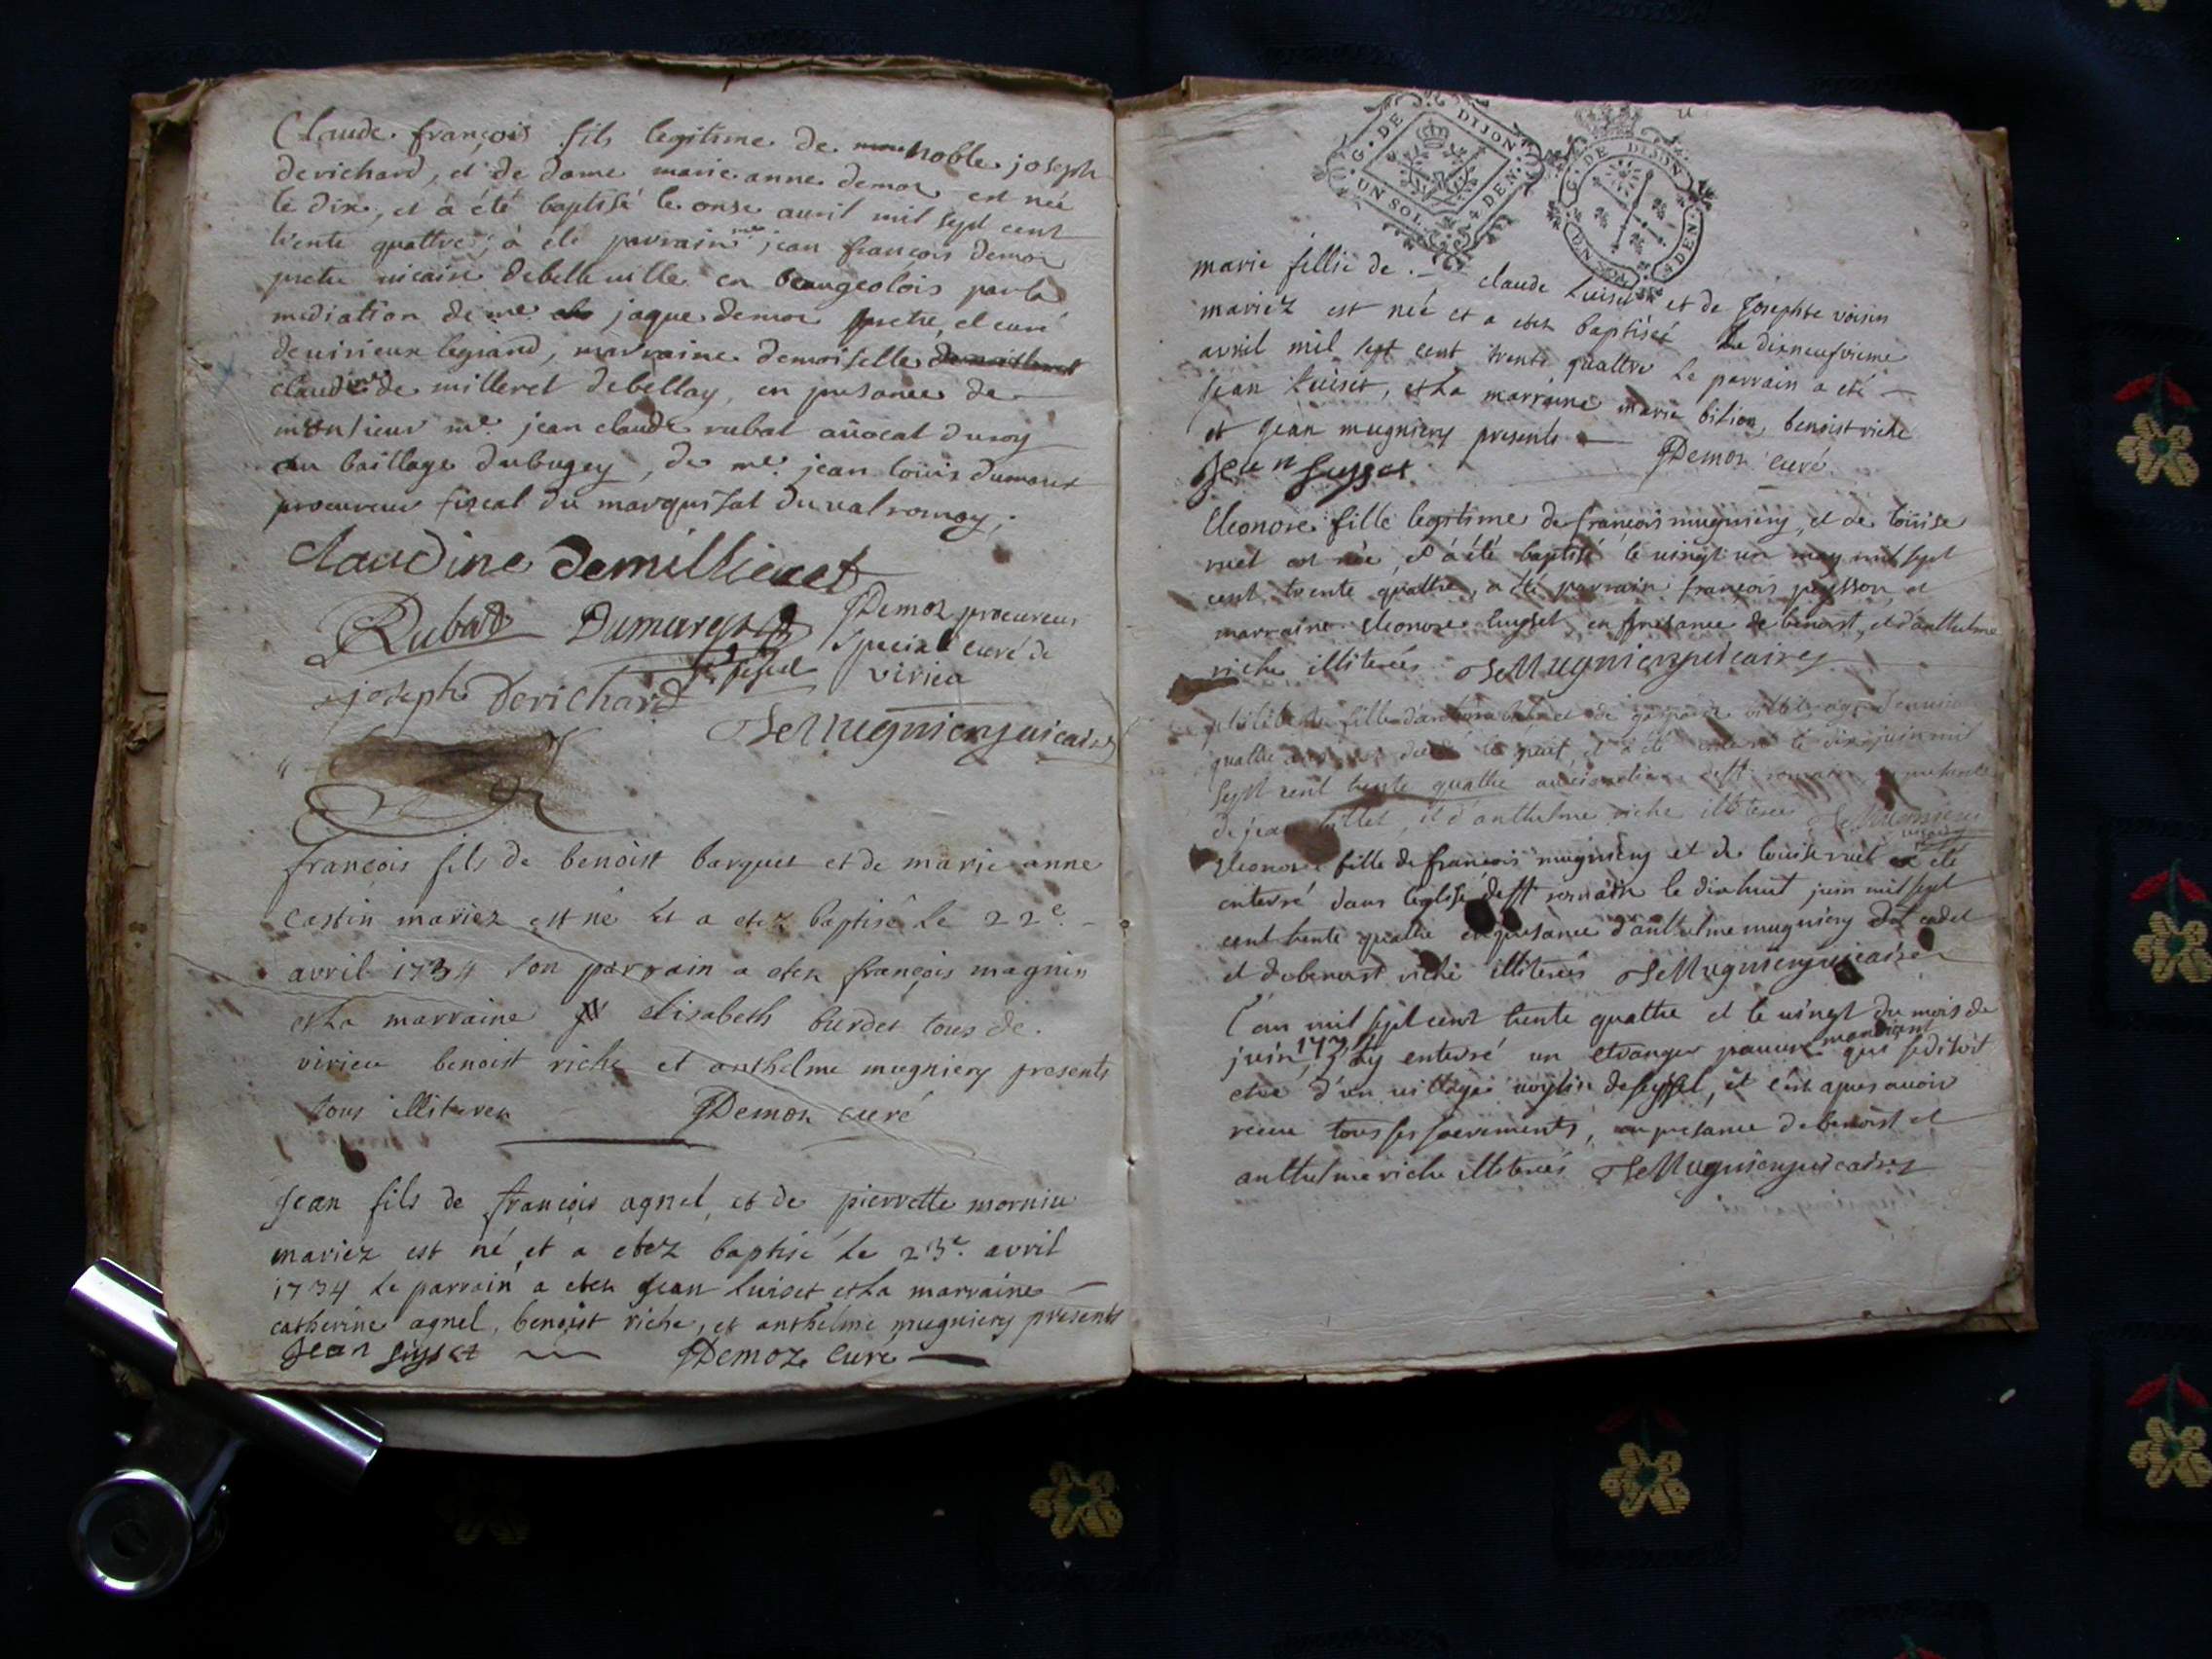 Claude françois fils legitime de noble joseph
derichard, et de dame marie anne demoz est née
le dix, et a été baptisé le onse auril mil sept cent
trente quattre; a été parrain me jean françois demoz
pretre uicaire debelleuille en beaugeolois par la
mediation de me jaque demoz pretre, et curé
deuirieux legrand, marraine demoiselle
claudine de milleret debellay, en presance de
monsieur me. jean claude rubat auocat du roy
au baillage dubugey, de me. jean loüis dumarest
procureur fiscal du marquisat du ualromey;
claudine Demillieret
Rubat Dumarest Demoz procureur
special curé de
virieu
joseph Derichard
Mugnier uicaire
françois fils de benoist barquet et de marie anne
castin mariez est né et a etez baptisé Le 22e.
avril 1734 son parrain a etez françois magnin
et La marraine elisabeth burdet tous de
virieu benoist riche et anthelme mugniery presents
tous illiterez Demoz curé
Jean fils de françois agnel, et de pierrette morniu
mariez est né et a etez baptisé Le 23e. avril
1734 Le parrain a etez Jean Luiset et La marraine
catherine agnel, benoist riche, et anthelme mugniery presents
Jean Demoz Curé
G. DE DIJON UN SOL 4 DEN.
G. DE DIJON 4 DEN.
marie fillie de claude Luiset et de Josephte voisin
mariez est née et a etez baptiseé Le dixneufvieme
avril mil sept cent trente quattre Le parrain a eté
Jean Luiset, et La marraine marie bilion, benoist riche
et jean mugniery presents Demoz curé
Jean
Eleonore fille legitime de françois mugniery, et de loüise
ruet est née, et a été baptisé le uingt un may mil sept
cent trente quattre, a été parrain françois peysson, et
marraine Eleonore Luyset, en presance de benoist, et d'anthelme
riche illiterés Mugniery uicaire
fille et de
quattre et a été le dix juin mil
sept cent trente quattre
de jean et d'anthelme riche illiteres
Eleonore fille de françois mugniery et de louise ruet a été
enterré dans leglise de st romain le dixhuit juin mil sept
cent trente quattre en presance d'anthelme mugniery dit cadet
et de benoist riche illiterés Mugniery uicaire
L'an mil sept cent trente quattre et le uingt du mois de
juin, j'ay enterré un etranger pauure mandiant qui se disoit
etre d'un uillage uoysin de seyssel, et c'est apres auoir
receu tous ses sacrements, en presance de benoist et
anthelme riche illiterés Mugniery uicaire